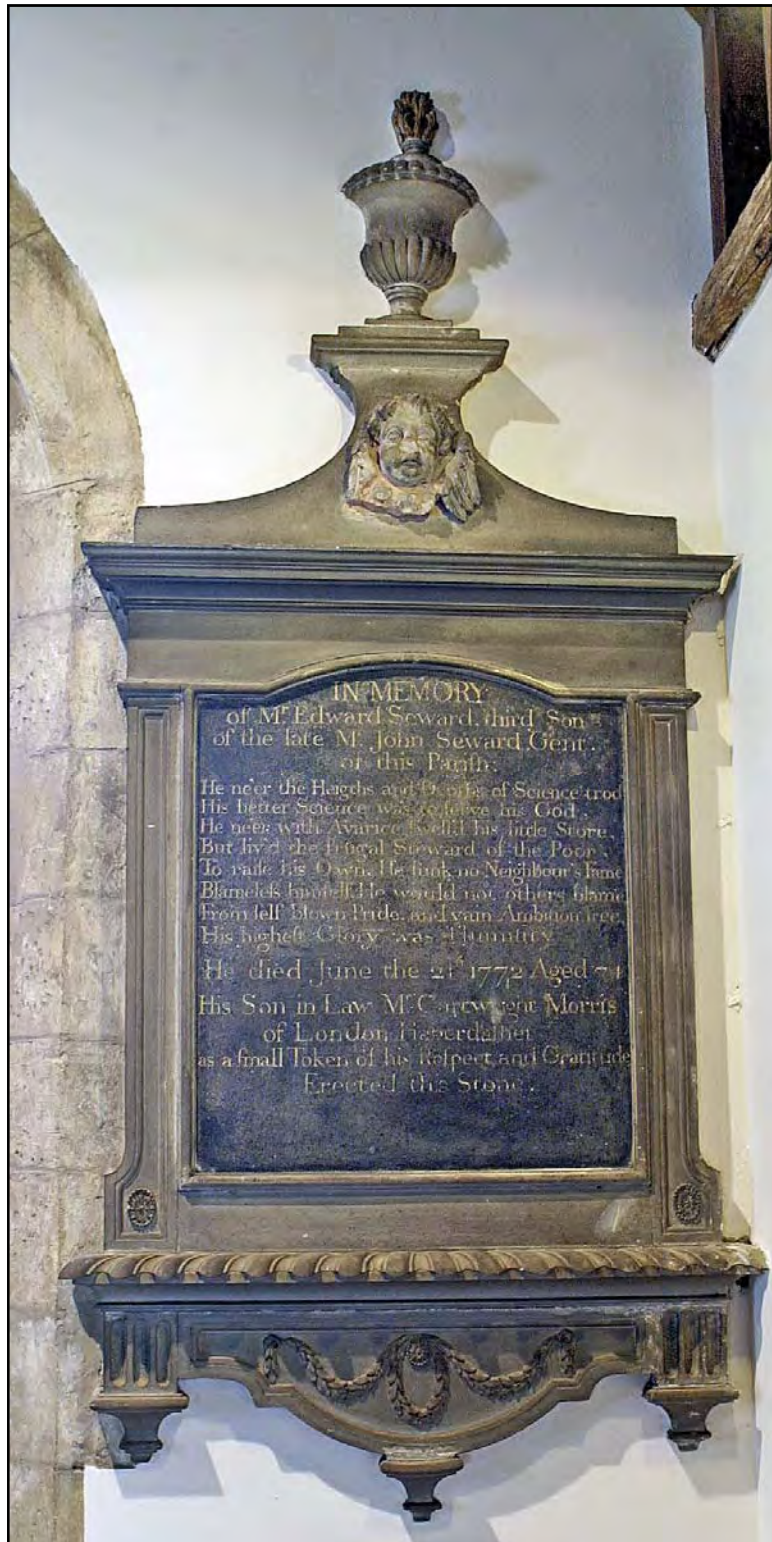 IN MEMORY
of Mr. Edward Seward, third Son
of the late Mr. John Seward Gent.
of this Parish:
He ne'er the Heigths and Depths of Science trod
His better Science was to serve his God.
He ne'er with Avarice swell'd his little Store,
But liv'd the frugal Steward of the Poor.
To raise his Own, He sunk no Neighbour's fame
Blameless himself, He would not others blame
From self blown Pride, and vain Ambition free,
His highest Glory was Humility
He died June the 21st 1772 Aged 74
His Son in Law Mr. Cartwright Morris
of London Haberdasher
as a small Token of his Respect and Gratitude
Erected this Stone.